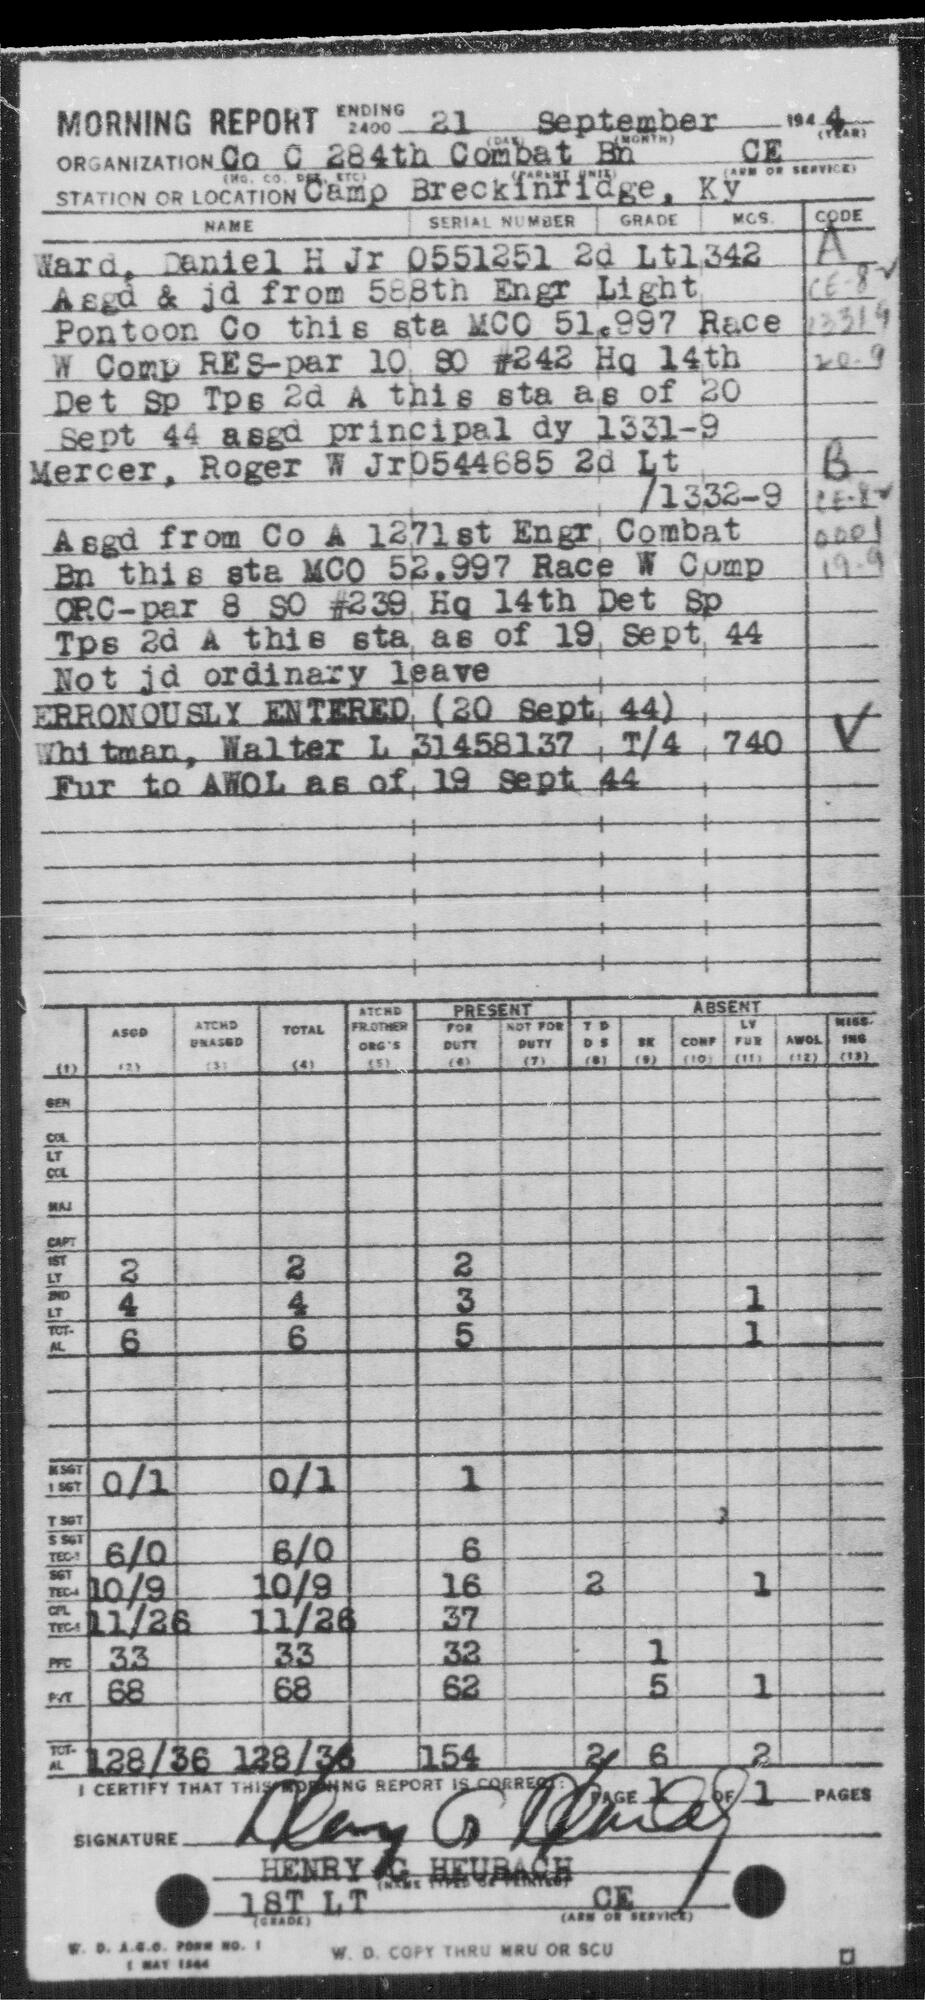 MORNING REPORT ENDING 2400 21 September 1944
(DAY) (MONTH) (YEAR)
ORGANIZATION Co C 284th Combat Bn CE
(HQ. CO. DET. ETC) (PARENT UNIT) (ARM OR SERVICE)
STATION OR LOCATION Camp Breckinridge, Ky
NAME SERIAL NUMBER GRADE MOS. CODE
Ward, Daniel H Jr 0551251 2d Lt1342 A
Asgd & jd from 588th Engr Light CE-8 ✓
Pontoon Co this sta MCO 51.997 Race 13319
W Comp RES-par 10 SO #242 Hq 14th 20-9
Det Sp Tps 2d A this sta as of 20
Sept 44 asgd principal dy 1331-9
Mercer, Roger W Jr0544685 2d Lt B
/1332-9 CE-8 ✓
Asgd from Co A 1271st Engr Combat 0001
Bn this sta MCO 52.997 Race W Comp 19-9
ORC-par 8 SO #239 Hq 14th Det Sp
Tps 2d A this sta as of 19 Sept 44
Not jd ordinary leave
ERRONOUSLY ENTERED (20 Sept 44)
Whitman, Walter L 31458137 T/4 740 ✓
Fur to AWOL as of 19 Sept 44
ATCHD PRESENT ABSENT
ASGD ATCHD UNASGD TOTAL FR.OTHER ORG'S FOR DUTY NOT FOR DUTY T D D S SK CONF LV FUR AWOL MISS-ING
(1) (2) (3) (4) (5) (6) (7) (8) (9) (10) (11) (12) (13)
GEN
COL
LT COL
MAJ
CAPT
1ST LT 2 2 2
2ND LT 4 4 3 1
TOT-AL 6 6 5 1
M SGT 1 SGT 0/1 0/1 1
T SGT
S SGT TEC-3 6/0 6/0 6
SGT TEC-4 10/9 10/9 16 2 1
CPL TEC-5 11/26 11/26 37
PFC 33 33 32 1
PVT 68 68 62 5 1
TOT-AL 128/36 128/36 154 2 6 2
I CERTIFY THAT THIS MORNING REPORT IS CORRECT: PAGE 1 OF 1 PAGES
SIGNATURE Henry G Heubach
HENRY G HEUBACH
(NAME TYPED OR PRINTED)
1ST LT CE
(GRADE) (ARM OR SERVICE)
W. D. A.G.O. FORM NO. 1
1 MAY 1944
W. D. COPY THRU MRU OR SCU